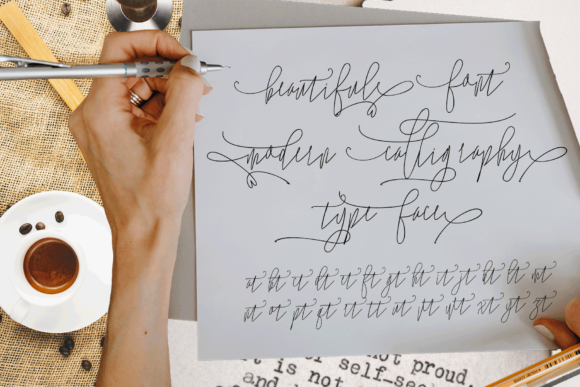 beautiful font
modern calligraphy
type face
at bt ct dt et ft gt ht it jt kt lt mt
nt ot pt qt rt tt ut vt wt xt yt zt
not proud
is not
and